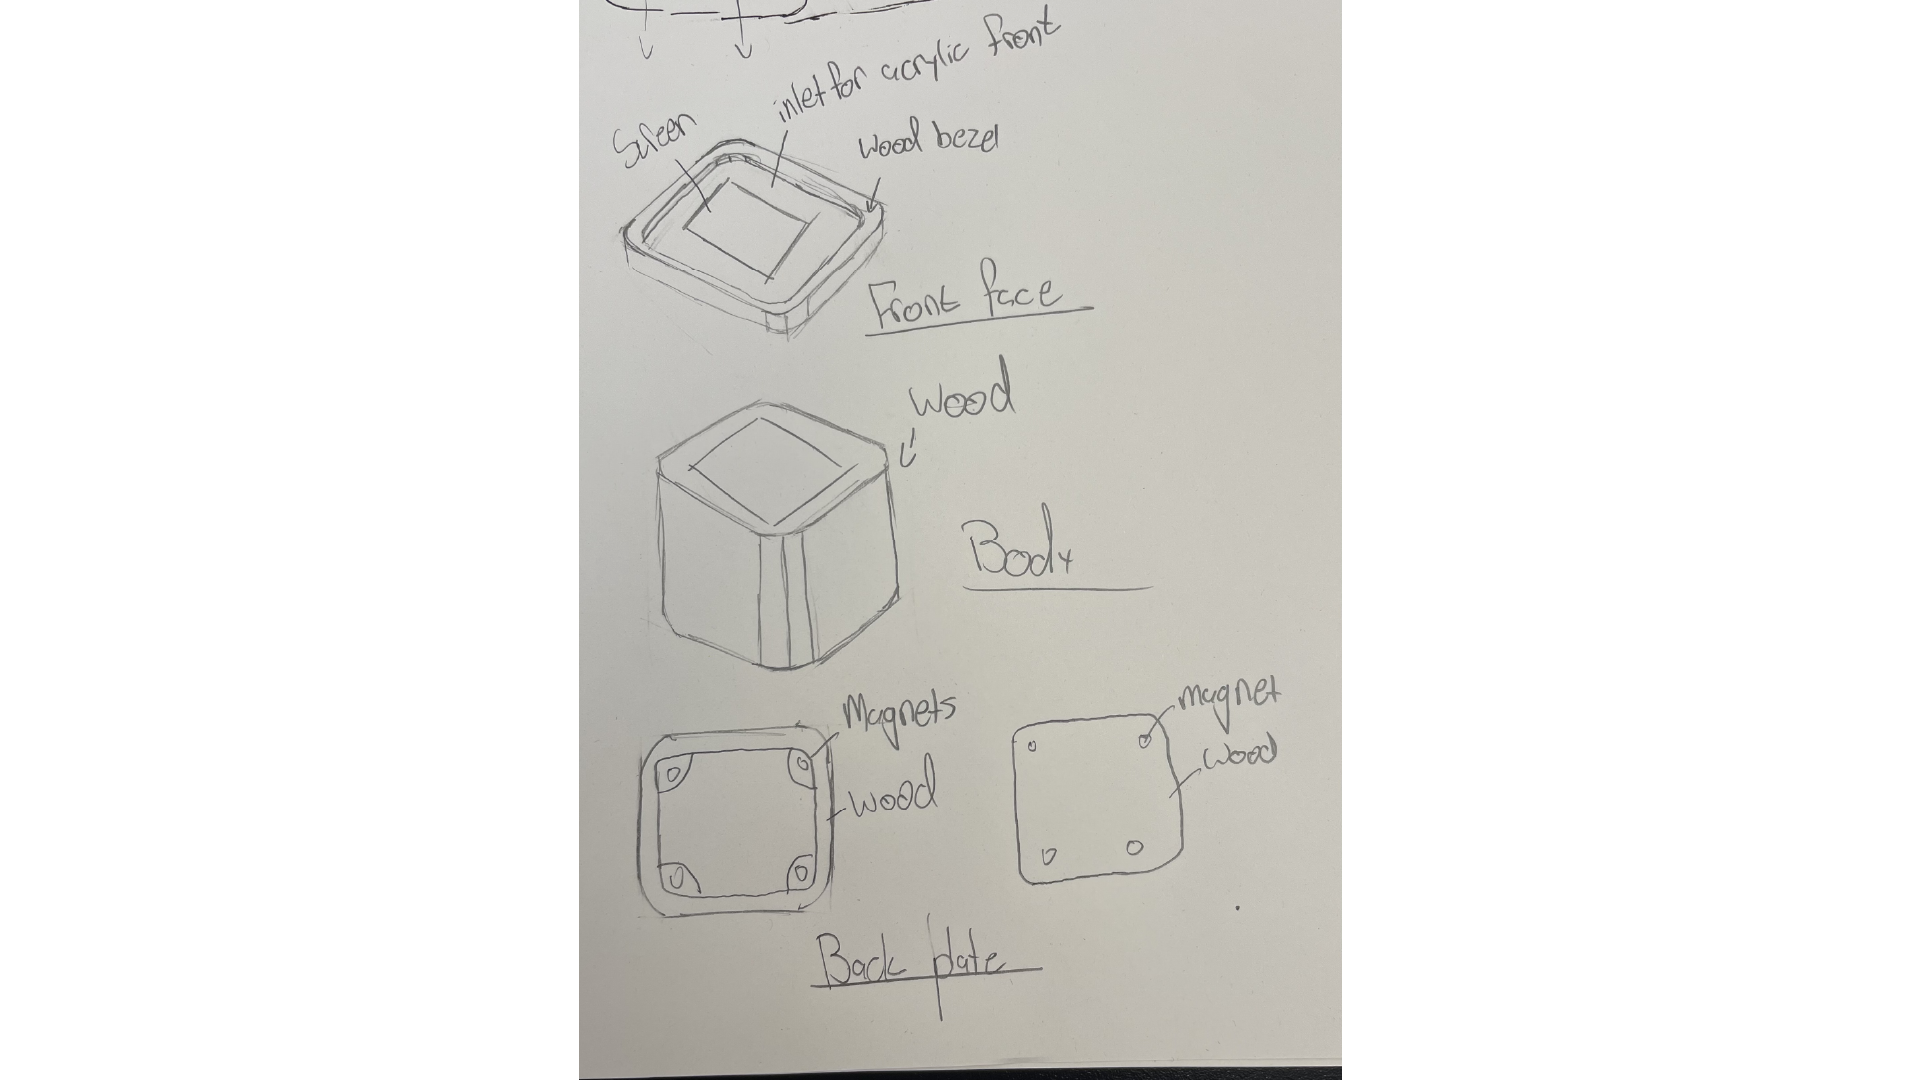 inlet for acrylic front
Screen
wood bezel
Front face
wood
Body
Magnets
wood
magnet
wood
Back plate